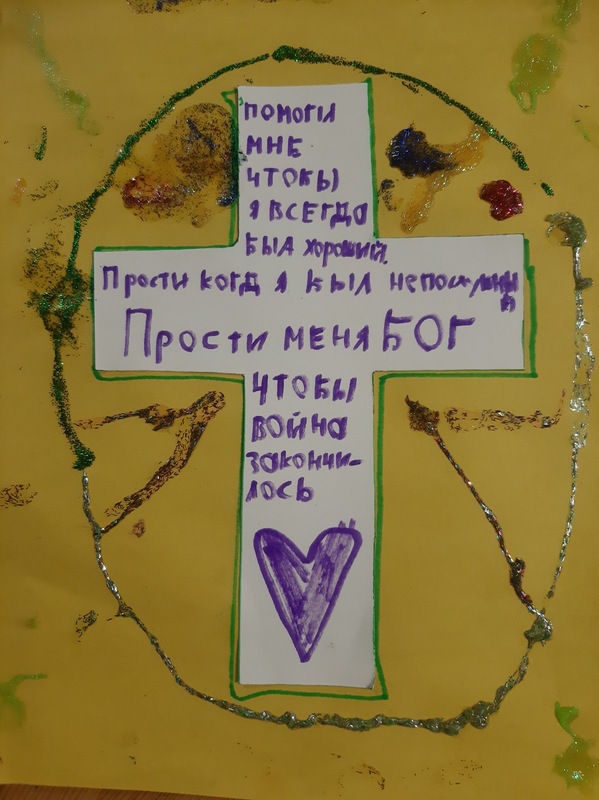 ПОМОГИ
МНЕ
ЧТОБЫ
Я ВСЕГДА
БЫЛ ХОРОШИЙ.
Прости когд я был непослушный
Прости меня БОГ
ЧТОБЫ
ВОЙНА
ЗАКОНЧИ-
ЛОСЬ